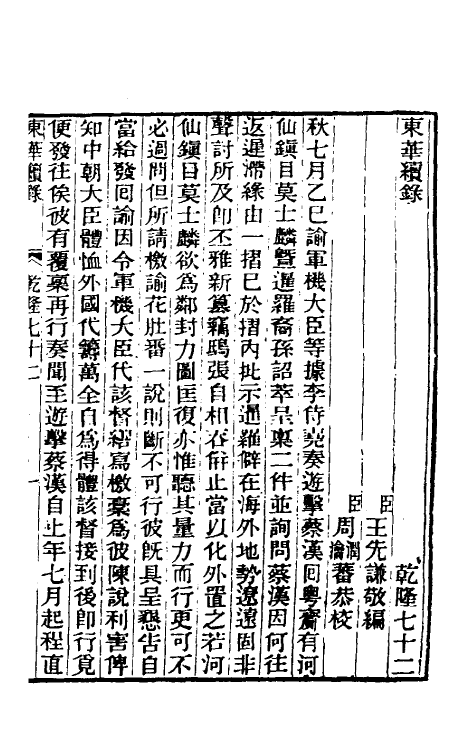 東華續錄
乾隆七十二
臣王先謙敬編
臣周潤蕃瀹蕃恭校
秋七月乙巳諭軍機大臣等據李侍堯奏遊擊蔡漢回粵齎有河
仙鎮目莫士麟暨暹羅裔孫詔萃呈稟二件並詢問蔡漢因何往
返遲滯緣由一摺已於摺內批示暹羅僻在海外地勢遼遠固非
聲討所及卽丕雅新篡竊鴟張自相吞倂止當以化外置之若河
仙鎮目莫士麟欲爲鄰封力圖匡復亦惟聽其量力而行更可不
必過問但所請檄諭花肚番一說則斷不可行彼旣具呈懇告自
當給發回諭因令軍機大臣代該督繕寫檄稾爲彼陳說利害俾
知中朝大臣體恤外國代籌萬全自爲得體該督接到後卽行覓
便發往俟彼有覆稟再行奏聞至遊擊蔡漢自上年七月起程直
東華續錄
乾隆七十二
一